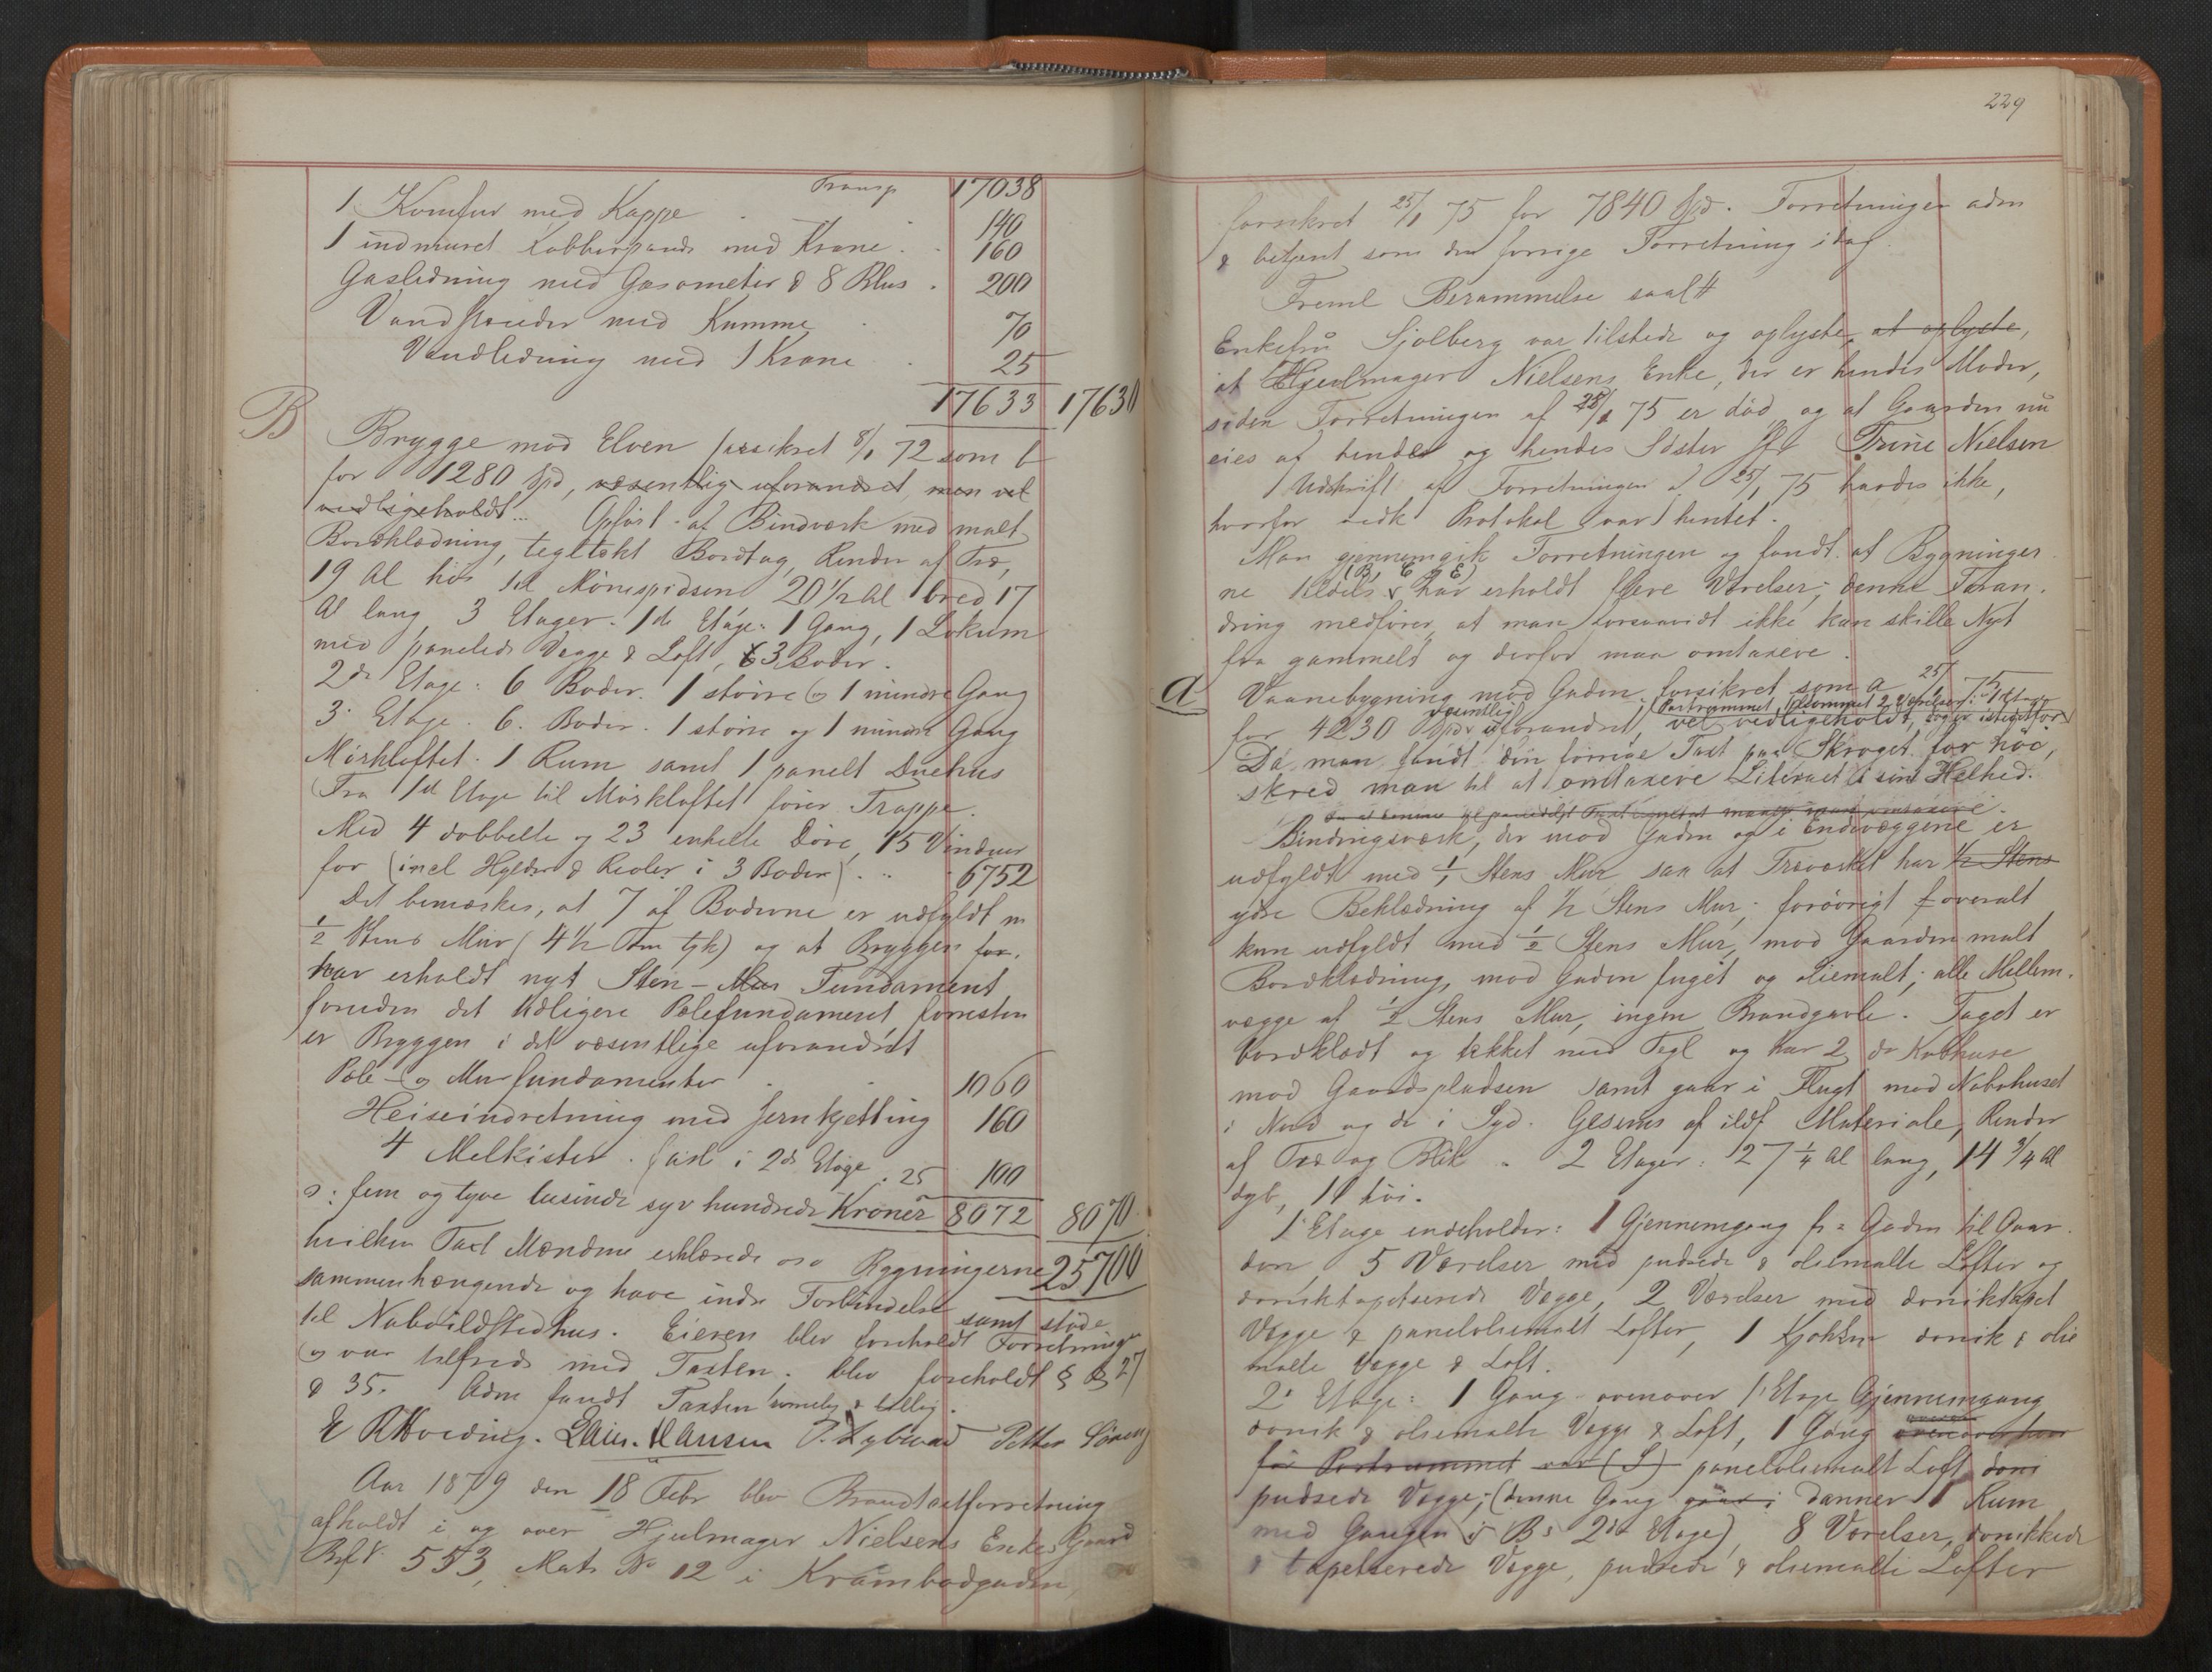 Transp 17038
1 Komfur med Kappe 140
1 indmuret Kobberpande med Krane 160
Gasledning med Gasometer & 8 Blus 200
Vandstænder med Kumme 70
Vandledning med 1 Krane 25
17633 17630
B
Brygge mod Elven forsikret 8/1 72 som b
for 1280 Spd, væsentlig uforandret, men vel
vedligeholdt... Opført af Bindværk med malt
Bordklædning, tegltækt Bordtag, Render af Træ,
19 Al høi til Mønespidsen 20 1/2 Al bred 17
Al lang, 3 Etager. 1de Etage: 1 Gang, 1 Lokum
med panelede Vægge & Loft, 3 Boder.
2de Etage: 6 Boder. 1 større og 1 mindre Gang
3. Etage. 6. Boder. 1 større og 1 mindre Gang
Mørkloftet. 1 Rum samt 1 panelt Duehus
Fra 1st Etage til Mørkloftet fører Trappe.
Med 4 dobbelte og 23 enkelte Døre, 15 Vinduer
for (incl Hylder & Reoler i 3 Boder) 6752
Det bemærkes, at 7 af Boderne er udfyldt m
1/2 Stens Mur (4 1/2 Tm tyk) og at Bryggen for.
har erholdt nyt Sten-Mur Fundament
foruden det tidligere Pælefundament forresten
er Bryggen i det væsentlige uforandret
Pæle- og Murfundamenter 1060
Heiseindretning med Jernkjetting 160
4 Melkister. fast i 2de Etage. 25 100
o: fem og tyve tusinde syv hundrede Kroner 8072 8070
hvilken Taxt Mændene erklærede Bygningerne 25700
sammenhængende og have indre Forbindelse samt støde
til Naboildstedhus. Eieren blev foreholdt Forretningen
og var tilfreds med Taxten. blev foreholdt § 27
& 35. Adm fandt Taxten rimelig & billig.
E R Hveding. Laur. Hansen P. Lykvad Petter Sørens
Aar 1879 den 18 Febr blev Brandtaxtforretning
afholdt i og over Hjulmager Nielsens Enkes Gaard
Brf N. 553, Matr No 12 i Krambodgaden,
229
forsikret 25/1 75 for 7840 Spd. Forretningen adm
& betjent som den forrige Forretning idag.
Freml Berammelse saal#
Enkefru Sjølberg var tilstede og oplyste, at oplyste,
at Hjulmager Nielsens Enke, der er hendes Moder,
siden Forretningen af 25/1 75 er død og at Gaarden nu
eies af hende og hendes Søster Trine Nielsen
Udskrift af Forretningen 25/1 75 havdes ikke,
hvorfor vedk Protokol var hentet.
Man gjennemgik Forretningen og fandt at Bygninger
(B, C & E)
ne tildels har erholdt flere Værelser; denne Foran.
dring medfører, at man forsaavidt ikke kan skille Nyt
fra gammelt og derfor maa omtaxere.
A
Vaanebygning mod Gaden forsikret som a 25/1 75
Portrummet, 2 Værelser i 1 Etage
for 4230 Spd væsentlig uforandret, vel vedligeholdt, og er istedetfor
Da man fandt den forrige Taxt paa Skroget for høi,
skred man til at omtaxere Literaet i sin Helhed.
Bindingsværk, der mod Gaden og i Endevæggene er
udfyldt med 1/1 Stens Mur saa at Træværket har 1/2 Stens
ydre Beklædning af 1/2 Stens Mur; forøvrigt overalt
kun udfyldt med 1/2 Stens Mur, mod Gaarden malt
Bordklædning, mod Gaden fuget og oliemalt; alle Mellem.
vægge af 1/2 Stens Mur, ingen Brandgavle. Taget er
bordklædt og tækket med Tegl og har 2 de Kobhuse
mod Gaardspladsen samt gaar i Flugt med Nabohuset
i Nord og de i Syd. Gesims af ildf Materiale, Render
af Træ og Blik. 2 Etager: 27 1/4 Al lang, 14 3/4 Al
dyb, 11 høi.
1 Etage indeholder: 1 Gjennemgang fra Gaden til Gaar.
den 5 Værelser med pudsede & oliemalte Lofter og
doniktapetserede Vægge, 2 Værelser med doniktapet
Vægge & paneloliemalt Lofter, 1 Kjøkken donik & olie
malte Vægge & Loft.
2. Etage: 1 Gang ovenover 1 Etage Gjennemgang
donik & oliemalte Vægge & Loft, 1 Gang ovenover
før Portrummet var (S) paneloliemalt Loft, doni
pudsede Vægge; (denne Gang danner 1 Rum
med Gangen i B: 2de Etage), 8 Værelser, donikkede
& tapetserede Vægge, pudsede & oliemalte Lofter